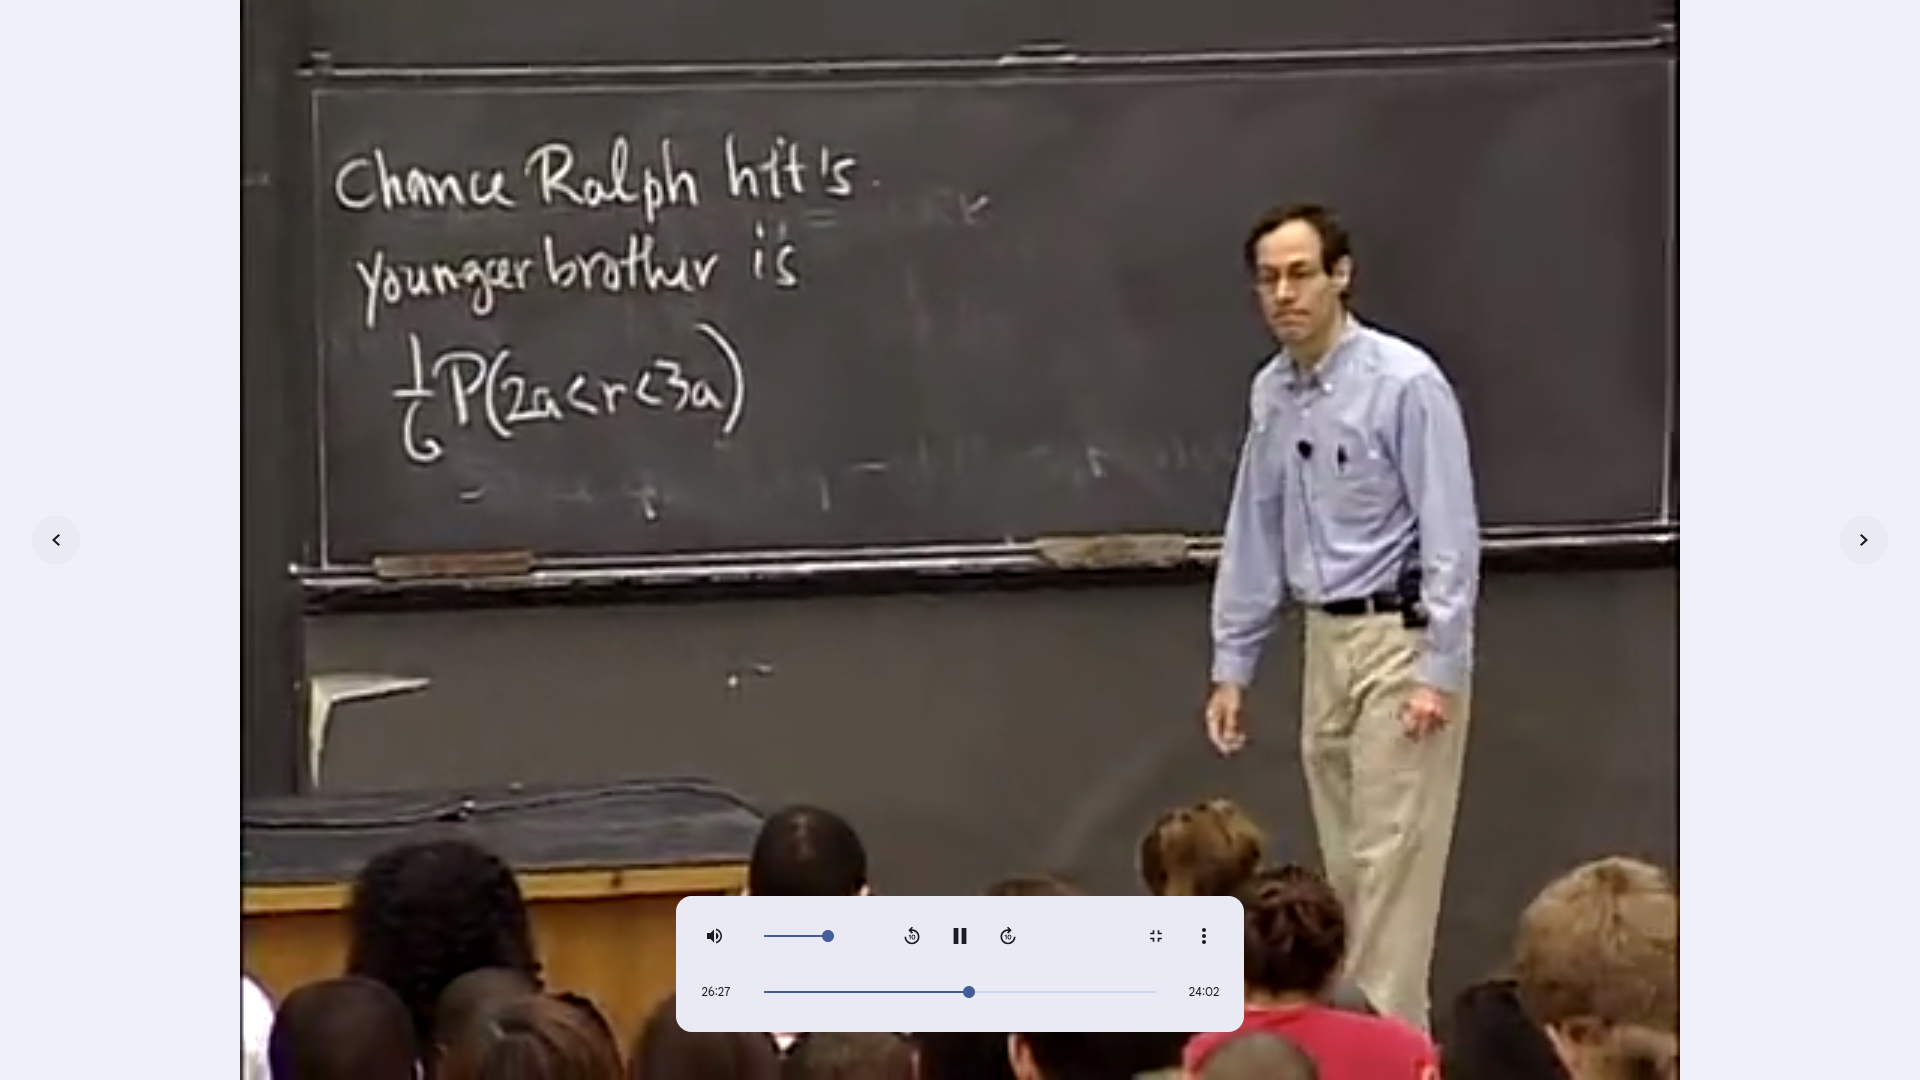 Chance Ralph hit's
younger brother is
1/6 P(2a<r<3a)
26:27
24:02